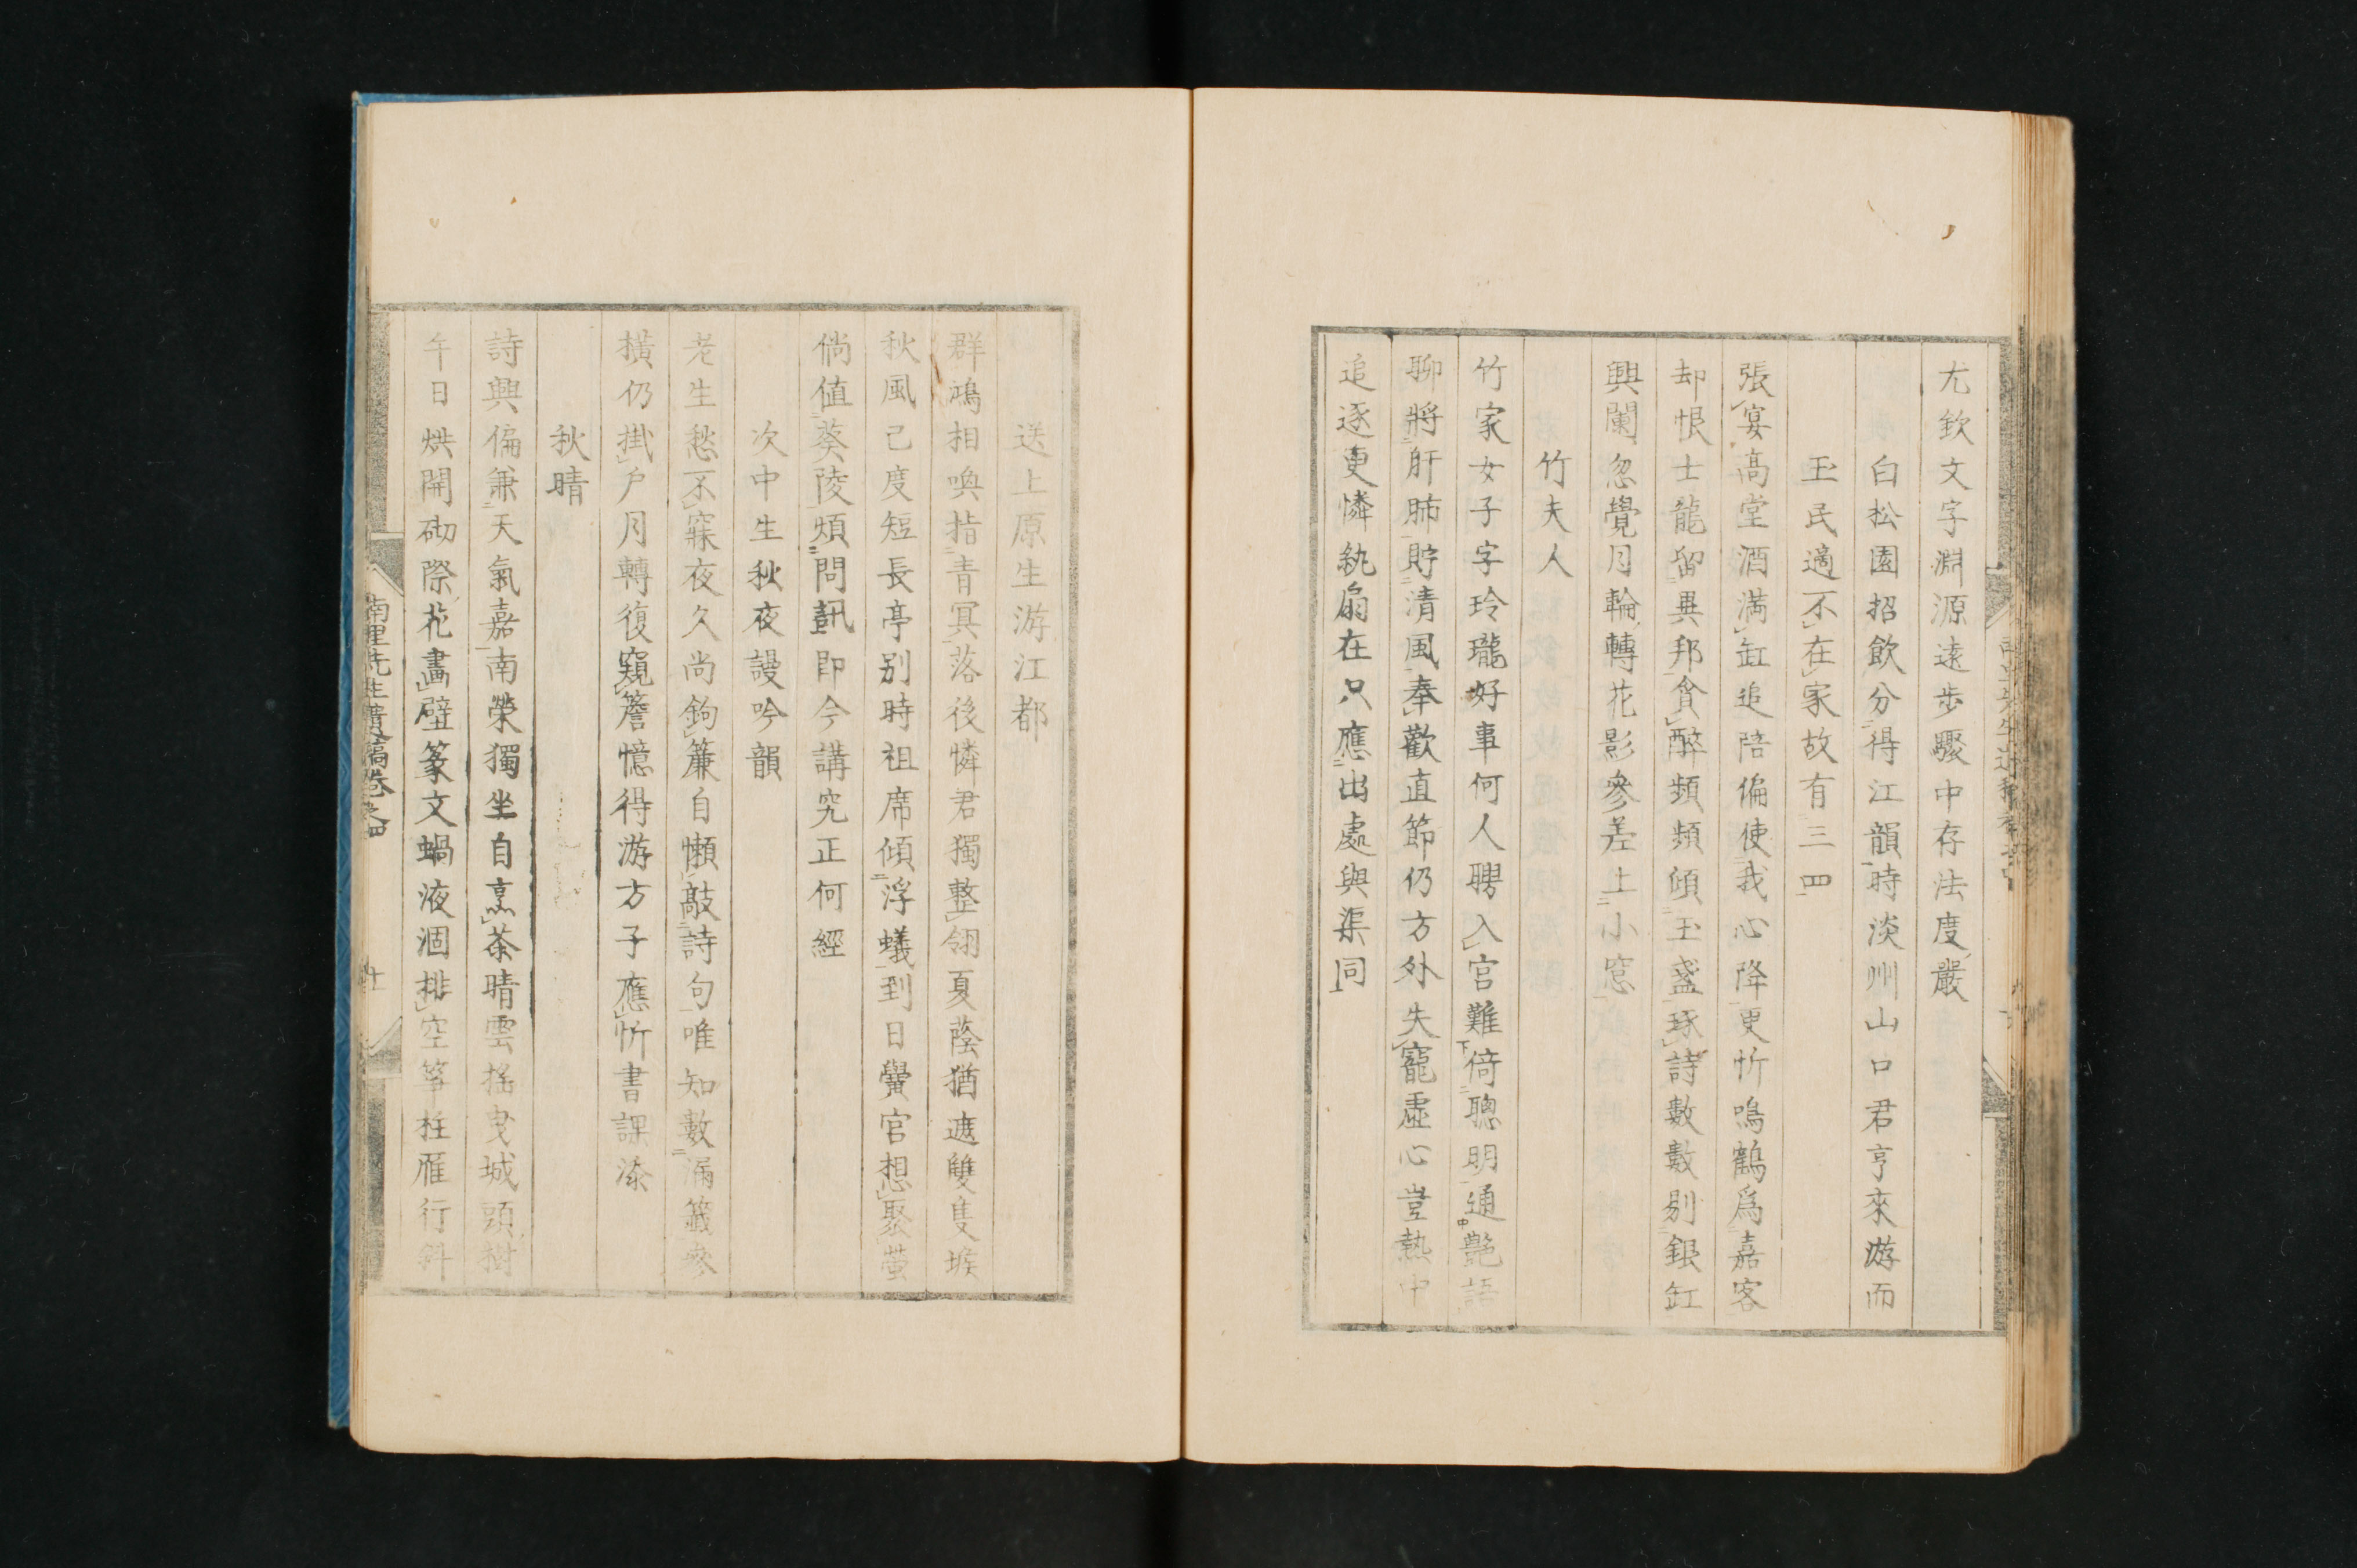 尤欽文字淵源遠步驟中存法度嚴
白松園招飲分得江韻時淡州山口君亨來游而
玉民適不在家故有三四
張宴高堂酒満缸追陪偏使我心降更忻鳴鶴爲嘉客
却恨士龍留異邦貪醉頻頻傾玉盞琢詩數數剔銀缸
興闌忽覺月輪轉花影參差上小窓
竹夫人
竹家女子字玲瓏好事何人聘入宮難倚聰明通艶語
聊將肝肺貯清風奉歡直節仍方外失寵虛心豈熱中
追逐更憐紈扇在只應出處與渠同
送上原生游江都
群鴻相喚指青冥落後憐君獨整翎夏蔭猶遮雙隻堠
秋風已度短長亭别時祖席傾浮蟻到日黌官想聚螢
倘値葵陵煩問訊即今講究正何經
次中生秋夜謾吟韻
老生愁不寐夜久尚鉤簾自懶敲詩句唯知數漏籤參
橫仍掛戶月轉復窺簷憶得游方子應忻書課添
秋晴
詩興偏兼天氣嘉南榮獨坐自烹茶晴雲搖曳城頭樹
午日烘開砌際花畵壁篆文蝸液涸排空筝柱雁行斜
南里先生遺稿卷之四
十